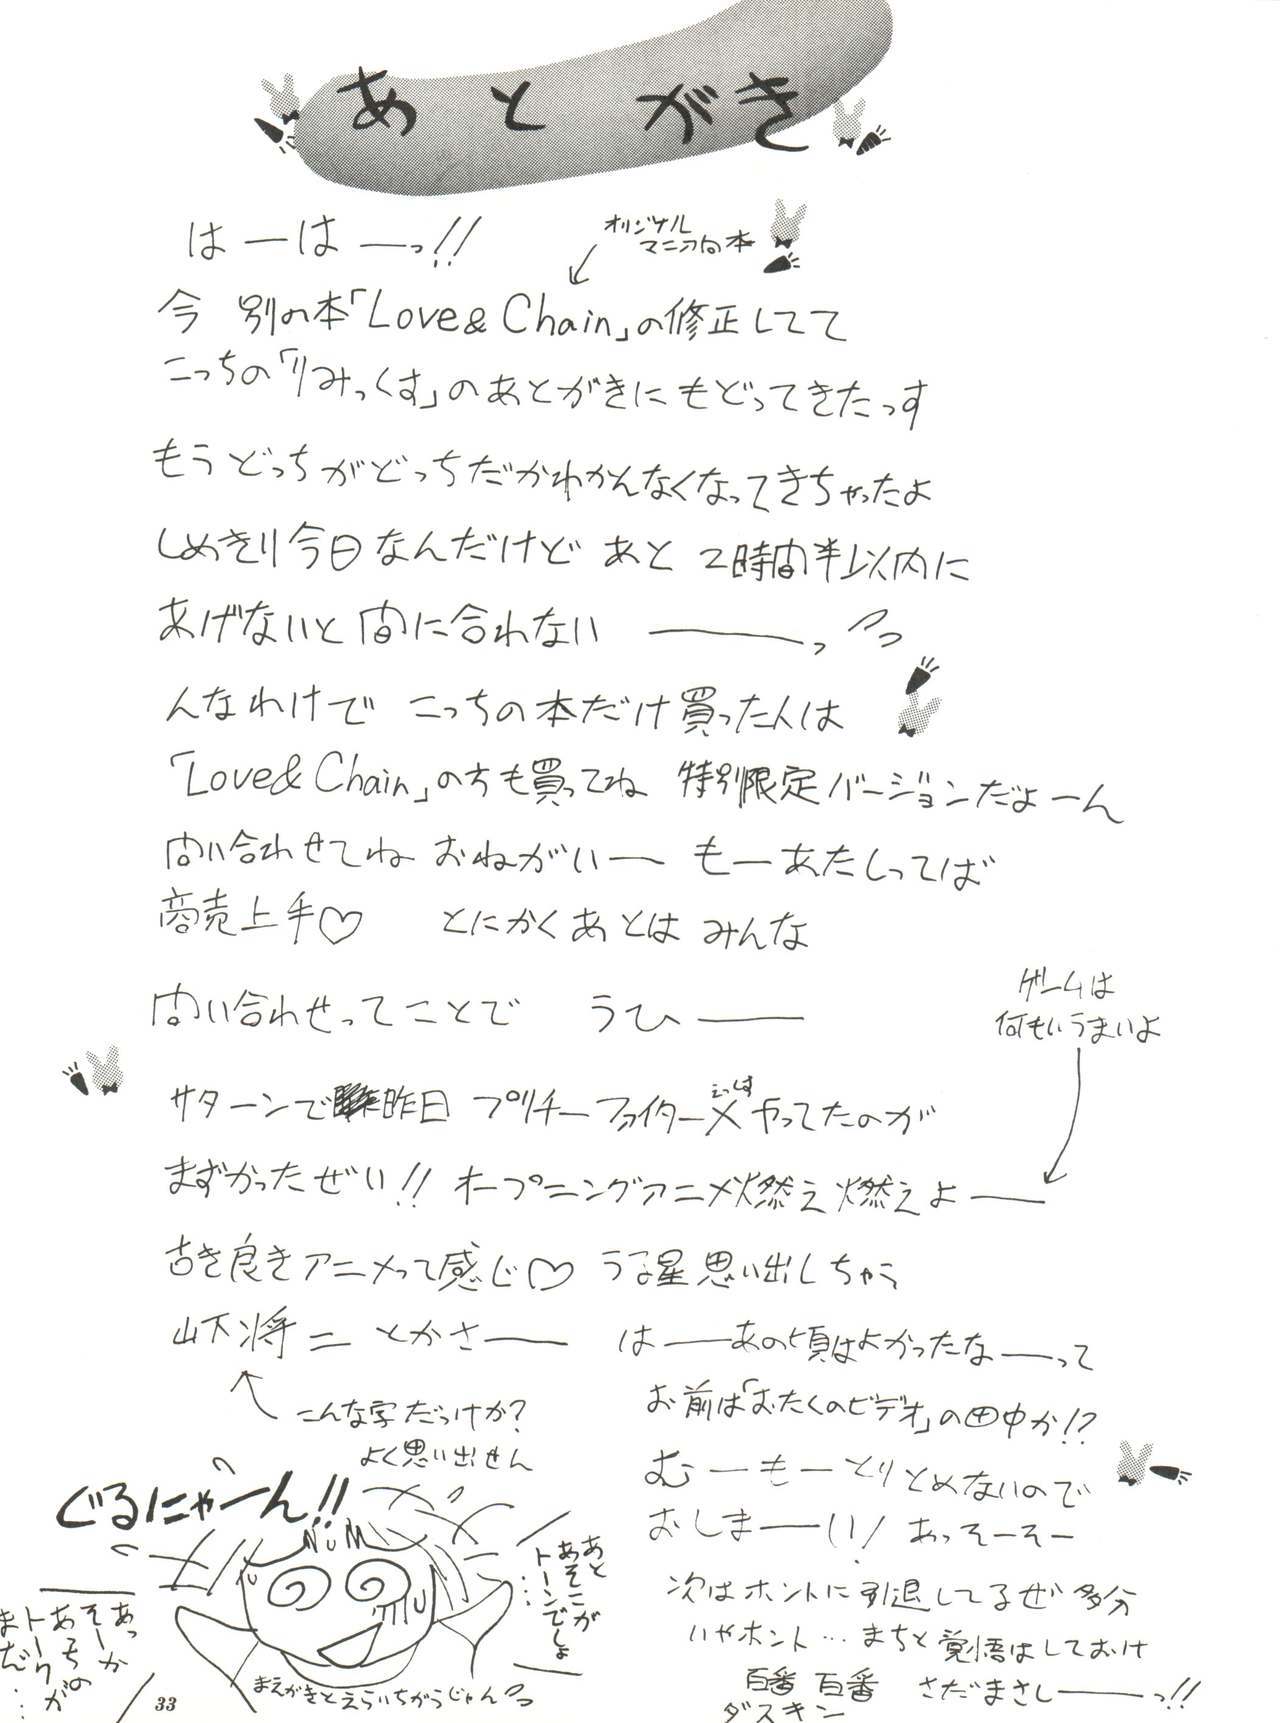 あとがき
はーはーっ!!
オリジナル
マニア向本
今 別の本「Love& Chain」の修正してて
こっちの「りみっくす」のあとがきにもどってきたっす
もうどっちがどっちだかわかんなくなってきちゃったよ
しめきり今日なんだけど あと 2時間半以内に
あげないと間に合わない ――っ
んなわけで こっちの本だけ買った人は
「Love& Chain」の方も買ってね 特別限定バージョンだよーん
問い合わせてね おねがいー もーあたしってば
商売上手♡ とにかくあとは みんな
問い合わせってことで うひ――
ゲームは
何もいうまいよ
サターンで昨日 プリチーファイターX やってたのが
えっくす
まずかったぜい!! オープニングアニメ燃え燃えよ――
古き良きアニメって感じ♡ うる星思い出しちゃう
山下将二 とかさ―― は――あの頃はよかったな――って
こんな字だっけか?
よく思い出せん
お前は「おたくのビデオ」の田中か!?
むーもーとりとめないので
おしま――い! あっそーそー
次はホントに引退してるぜ 多分
いやホント… まちと覚悟はしておけ
百番 百番 さだまさし――っ!!
ダスキン
ぐるにゃーん!!
あと
あそこが
トーンでしょ
……
あっか
そーか
あっちの
トークが
まだ……
まえがきとえらいちがうじゃん
33